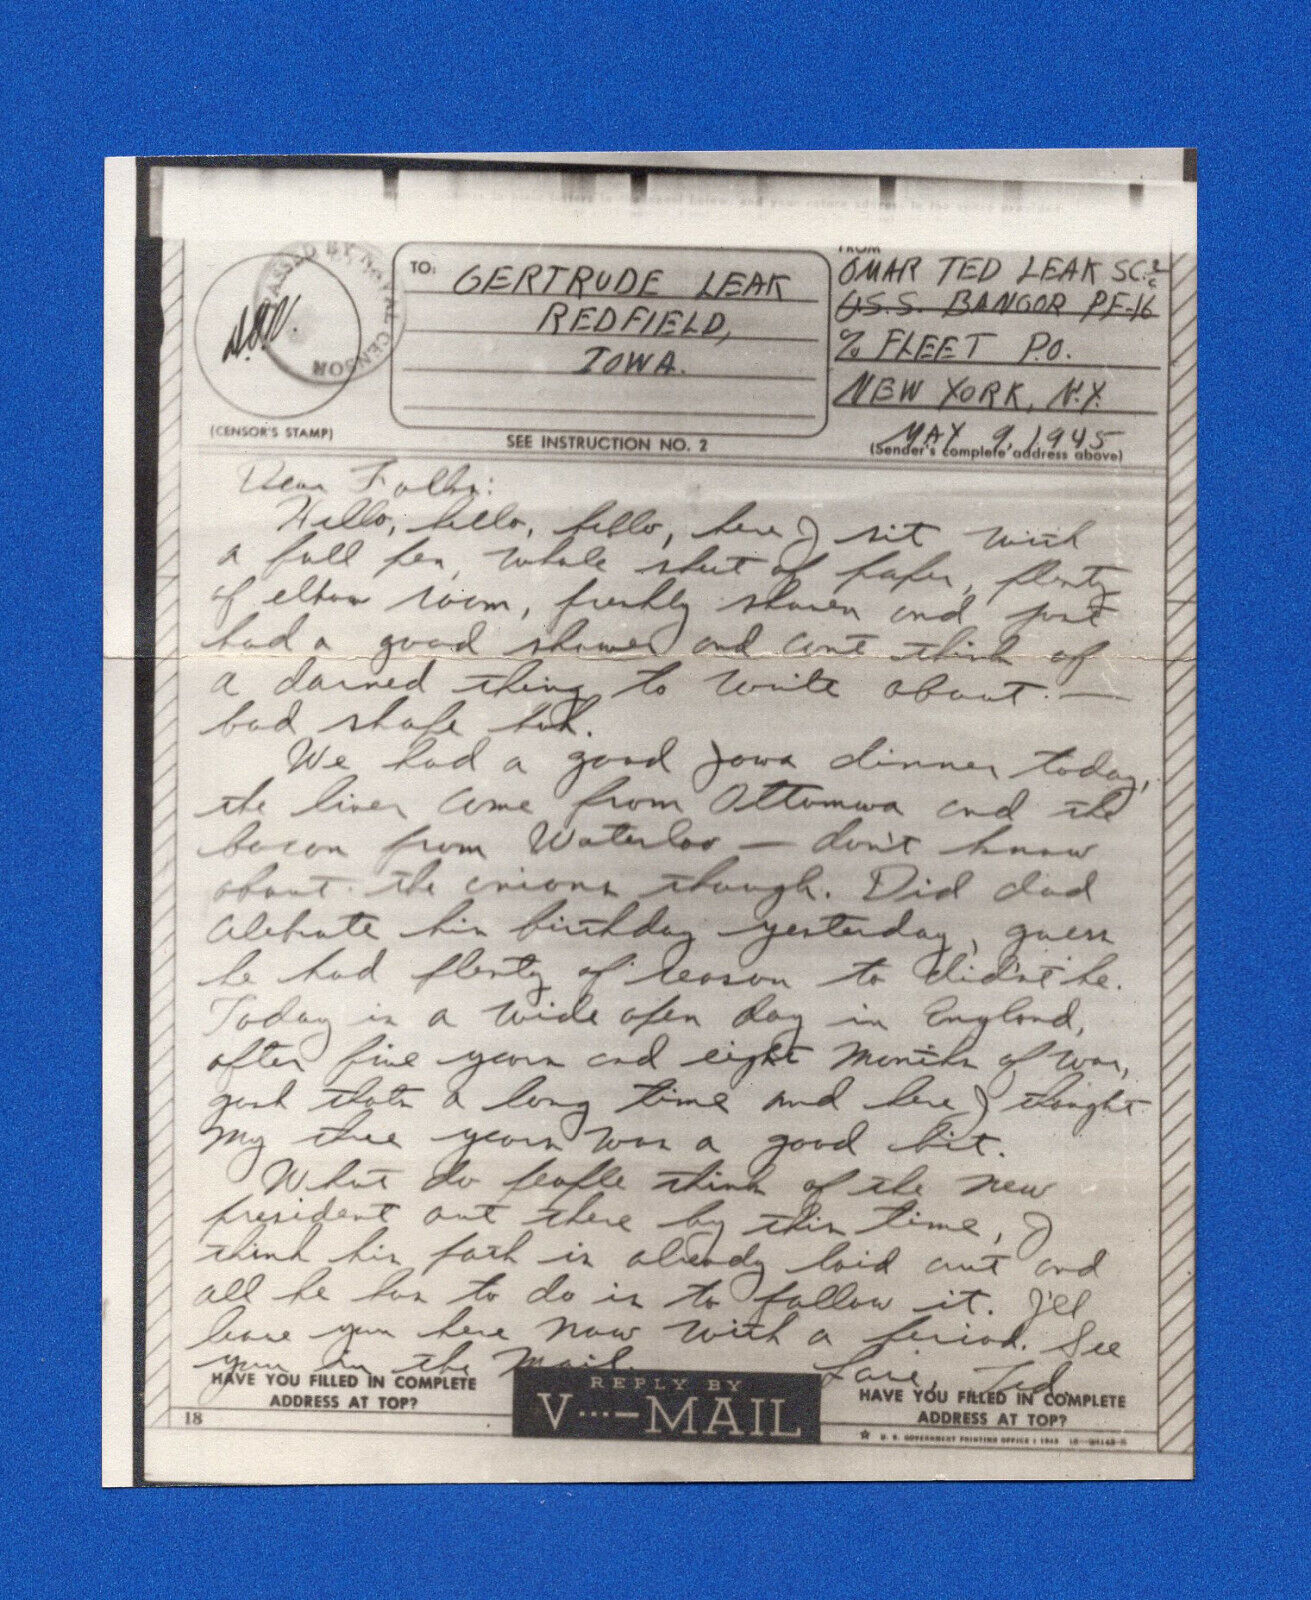 PASSED BY NAVAL CENSOR
(CENSOR'S STAMP)
TO:
GERTRUDE LEAK
REDFIELD,
IOWA.
SEE INSTRUCTION NO. 2
FROM
OMAR TED LEAK SC 2/c
U.S.S. BANGOR PF-16
% FLEET P.O.
NEW YORK, N.Y.
MAY 9, 1945
(Sender's complete address above)
Dear Folks:
Hello, hello, hello, here I sit with
a full pen, whole sheet of paper, plenty
of elbow room, freshly shaven and just
had a good shower and cant think of
a darned thing to write about. —
bad shape huh.
We had a good Iowa dinner today,
the liver came from Ottumwa and the
bacon from Waterloo — don't know
about the onions though. Did dad
celebrate his birthday yesterday, guess
he had plenty of reason to didn't he.
Today is a wide open day in England,
after five years and eight months of war,
gosh thats a long time and here I thought
my three years was a good bit.
What do people think of the new
president out there by this time, I
think his path is already laid out and
all he has to do is to follow it. I'll
leave you here now with a period. See
you in the Mail. Love, Ted.
HAVE YOU FILLED IN COMPLETE
ADDRESS AT TOP?
REPLY BY
V···—MAIL
HAVE YOU FILLED IN COMPLETE
ADDRESS AT TOP?
18
☆ U. S. GOVERNMENT PRINTING OFFICE : 1943